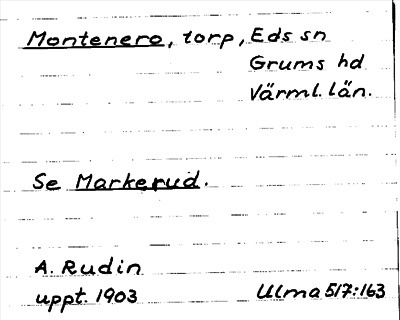 Montenero, torp, Eds sn
Grums hd
Värml. län.
Se Markerud.
A. Rudin
uppt. 1903 Ulma 517:163